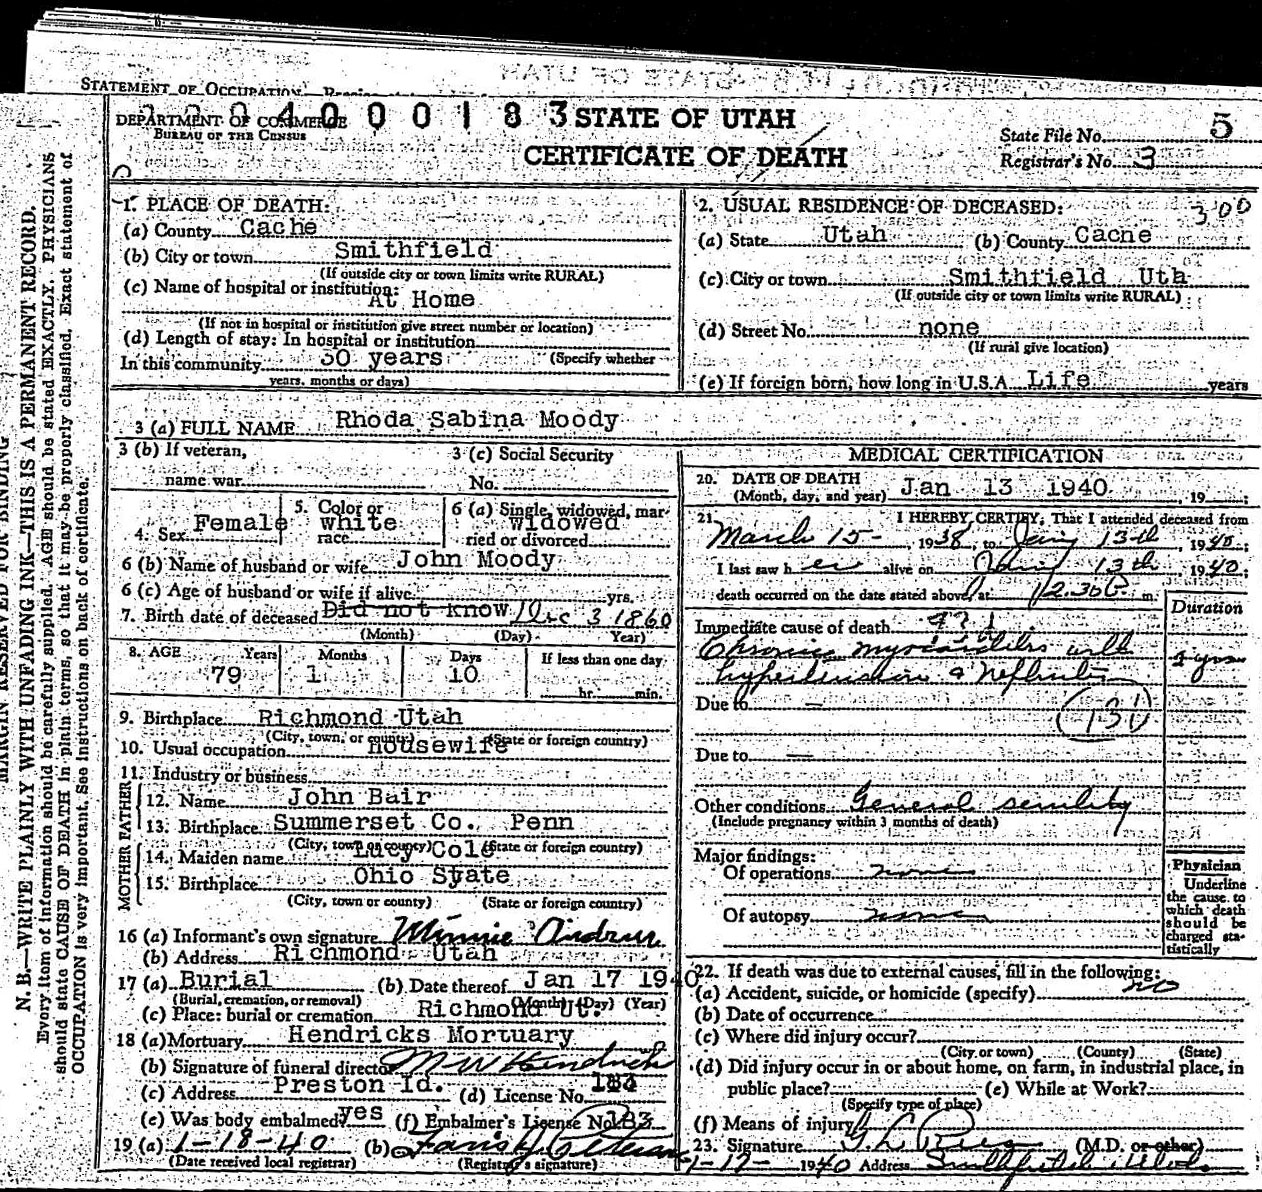 STATE OF UTAH
STATEMENT OF OCCUPATION
400018 3 STATE OF UTAH
DEPARTMENT OF COMMERCE
BUREAU OF THE CENSUS
CERTIFICATE OF DEATH
State File No. 5
Registrar's No. 3
MARGIN RESERVED FOR BINDING
N. B.—WRITE PLAINLY WITH UNFADING INK—THIS IS A PERMANENT RECORD.
Every item of information should be carefully supplied. AGE should be stated EXACTLY. PHYSICIANS
should state CAUSE OF DEATH in plain terms, so that it may be properly classified. Exact statement of
OCCUPATION is very important. See instructions on back of certificate.
1. PLACE OF DEATH:
(a) County Cache
(b) City or town Smithfield
(If outside city or town limits write RURAL)
(c) Name of hospital or institution:
At Home
(If not in hospital or institution give street number or location)
(d) Length of stay: In hospital or institution
In this community years (Specify whether
years, months or days)
2. USUAL RESIDENCE OF DECEASED: 300
(a) State Utah (b) County Cache
(c) City or town Smithfield Uta
(If outside city or town limits write RURAL)
(d) Street No. none
(If rural give location)
(e) If foreign born, how long in U.S.A. Life years
3 (a) FULL NAME Rhoda Sabina Moody
3 (b) If veteran,
name war
3 (c) Social Security
No.
4. Sex Female
5. Color or
race white
6 (a) Single, widowed, mar-
ried or divorced widowed
6 (b) Name of husband or wife John Moody
6 (c) Age of husband or wife if alive yrs.
7. Birth date of deceased Did not know Dec 3 1860
(Month) (Day) Year)
8. AGE Years Months Days If less than one day
79 1 10 hr. min.
9. Birthplace Richmond Utah
(City, town, or county) (State or foreign country)
10. Usual occupation housewife
11. Industry or business
FATHER
12. Name John Bair
13. Birthplace Summerset Co. Penn
(City, town or county) (State or foreign country)
MOTHER
14. Maiden name Lucy Cole
15. Birthplace Ohio Syate
(City, town or county) (State or foreign country)
16 (a) Informant's own signature Minnie
(b) Address Richmond Utah
17 (a) Burial (b) Date thereof Jan 17 1940
(Burial, cremation, or removal) (Month) (Day) (Year)
(c) Place: burial or cremation Richmond Ut.
18 (a) Mortuary Hendricks Mortuary
(b) Signature of funeral director M W Hendricks
(c) Address Preston Id. (d) License No.
(e) Was body embalmed? yes (f) Embalmer's License No. 183
19 (a) 1-18-40 (b)
(Date received local registrar) (Registrar's signature)
MEDICAL CERTIFICATION
20. DATE OF DEATH
(Month, day, and year) Jan 13 1940, 19 ;
21. I HEREBY CERTIFY, That I attended deceased from
March 15-, 1938, to Jan 13th, 1940;
I last saw her alive on 13th 1940;
death occurred on the date stated above, at 12:30 m.
Immediate cause of death
Duration
Chronic myocarditis with
hypertension & Nephritis
yrs
Due to — (131)
Due to —
Other conditions General senility
(Include pregnancy within 3 months of death)
Major findings:
Of operations none
Of autopsy none
Physician
Underline
the cause to
which death
should be
charged sta-
tistically
22. If death was due to external causes, fill in the following:
(a) Accident, suicide, or homicide (specify) no
(b) Date of occurrence
(c) Where did injury occur?
(City or town) (County) (State)
(d) Did injury occur in or about home, on farm, in industrial place, in
public place? (e) While at Work?
(Specify type of place)
(f) Means of injury
23. Signature (M.D. or other)
1-17- 1940 Address Smithfield Utah